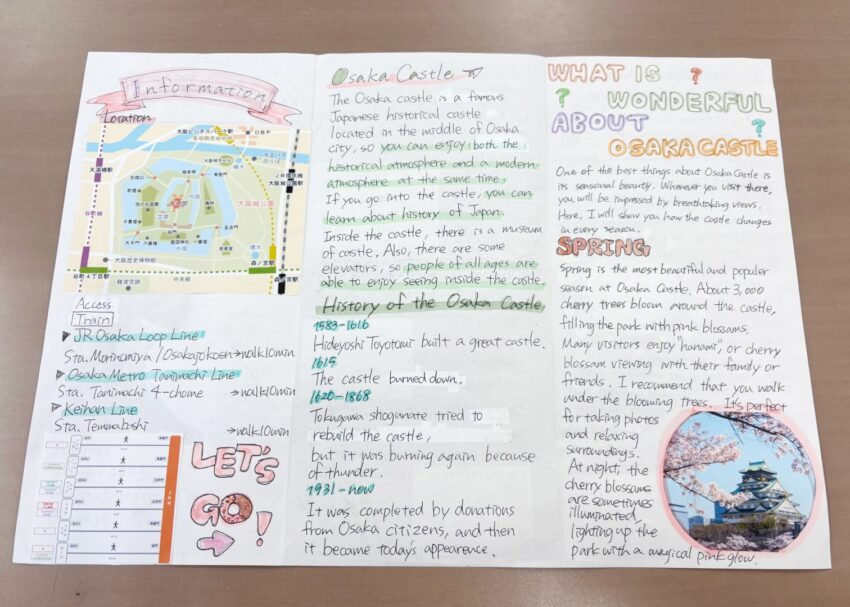 Information
Location
大阪ビジネスパーク駅
OBP
大阪城公園
天満橋駅
谷町線
谷町4丁目駅
大阪歴史博物館
中央線
森ノ宮駅
Access
Train
JR Osaka Loop Line
Sta. Morinomiya / Osakajokoen →walk10min
Osaka Metro Tanimachi Line
Sta. Tanimachi 4-chome →walk10min
Keihan Line
Sta. Temmabashi →walk10min
LET'S
GO!
Osaka Castle
The Osaka castle is a famous
Japanese historical castle
located in the middle of Osaka
city, so you can enjoy both the
historical atmosphere and a modern
atmosphere at the same time.
If you go into the castle, you can
learn about history of Japan.
Inside the castle, there is a museum
of castle. Also, there are some
elevators, so people of all ages are
able to enjoy seeing inside the castle.
History of the Osaka Castle
1583-1616
Hideyoshi Toyotomi built a great castle.
1615
The castle burned down.
1620-1868
Tokugawa shogunate tried to
rebuild the castle,
but it was burning again because
of thunder.
1931-now
It was completed by donations
from Osaka citizens, and then
it became today's appearence.
WHAT IS ?
? WONDERFUL
ABOUT ?
OSAKA CASTLE
One of the best things about Osaka Castle is
its seasonal beauty. Whenever you visit there,
you will be impressed by breathtaking views.
Here, I will show you how the castle changes
in every season.
SPRING
Spring is the most beautiful and populer
season at Osaka Castle. About 3,000
cherry trees bloom around the castle,
filling the park with pink blossoms.
Many visitors enjoy "hanami", or cherry
blossam viewing with their family or
friends. I recommend that you walk
under the blooming trees. It's perfect
for taking photos
and relaxing
surroundings.
At night, the
cherry blossams
are sometimes
illuminated,
lighting up the
park with a magical pink glow.